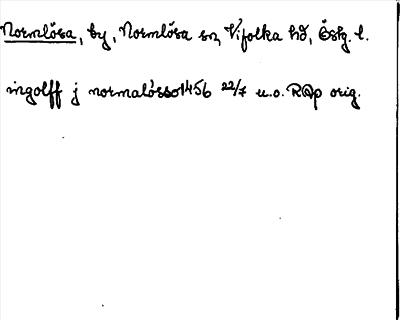 Normlösa, by, Normlösa sn, Vifolka hd, Östg. l.
ingolff j normalösso 1456 22/7 u.o. RAp orig.